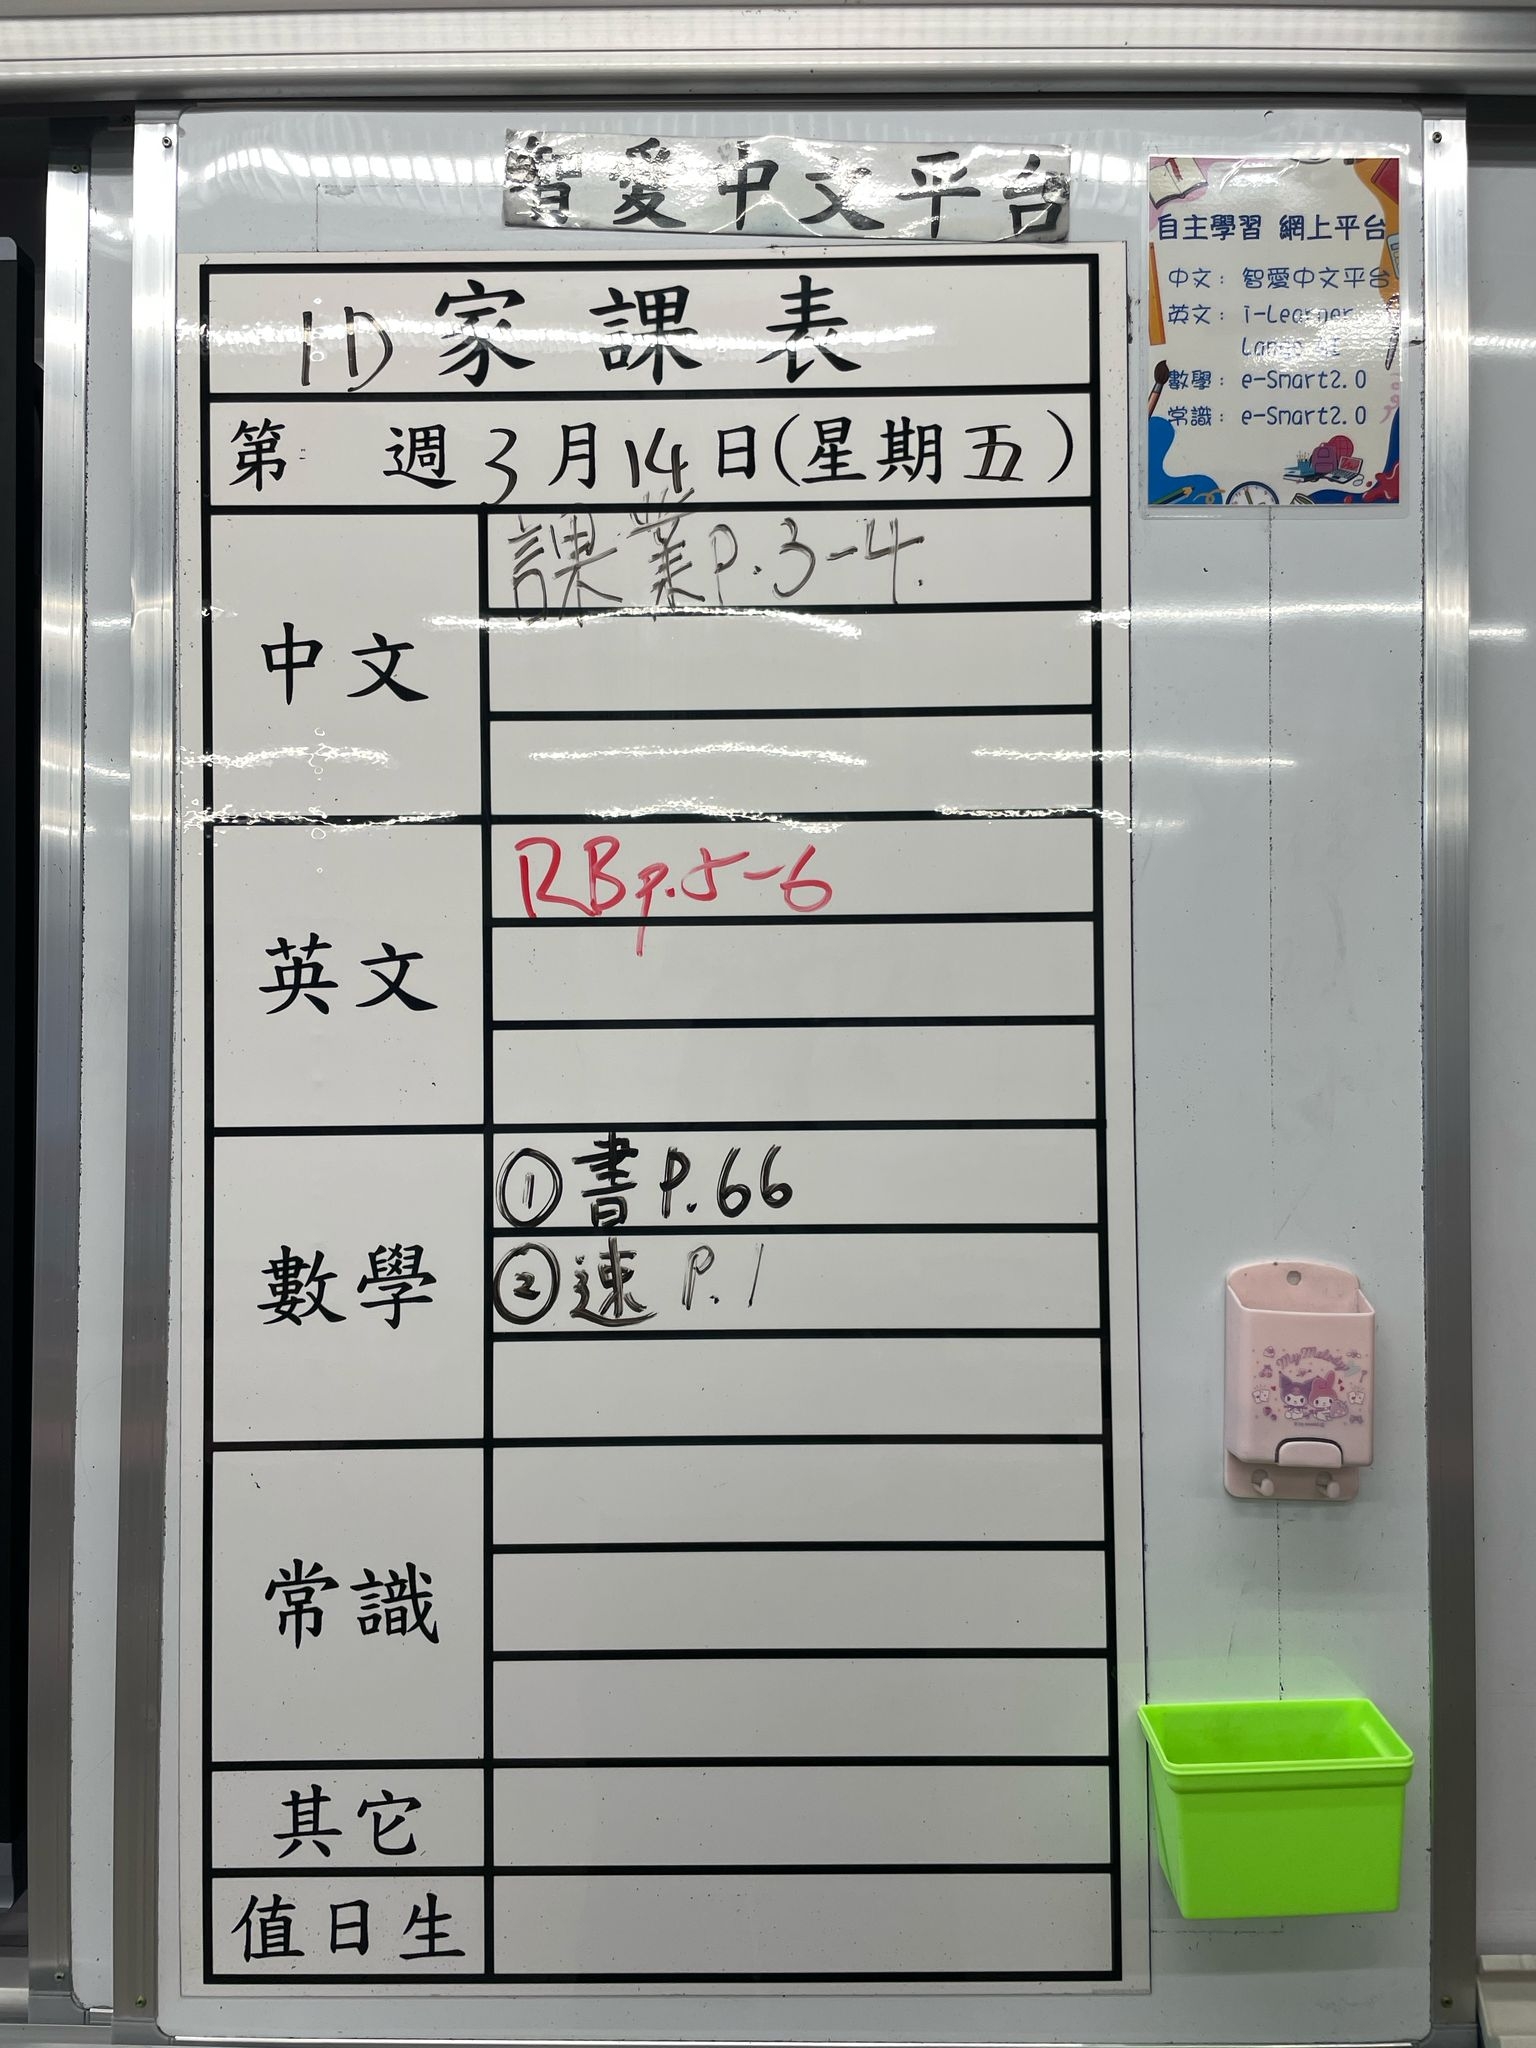 智愛中文平台
自主學習 網上平台
中文：智愛中文平台
英文：i-Learner
Lango AI
數學：e-Smart2.0
常識：e-Smart2.0
1D 家課表
第 週 3月14日(星期五)
中文
課業P.3-4.
英文
RB p.5-6
數學
①書P.66
②速 P.1
常識
其它
值日生
My Melody